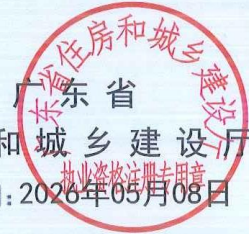 广东省住房和城乡建设厅
执业资格注册专用章
广东省
和城乡建设厅
:2026年05月08日